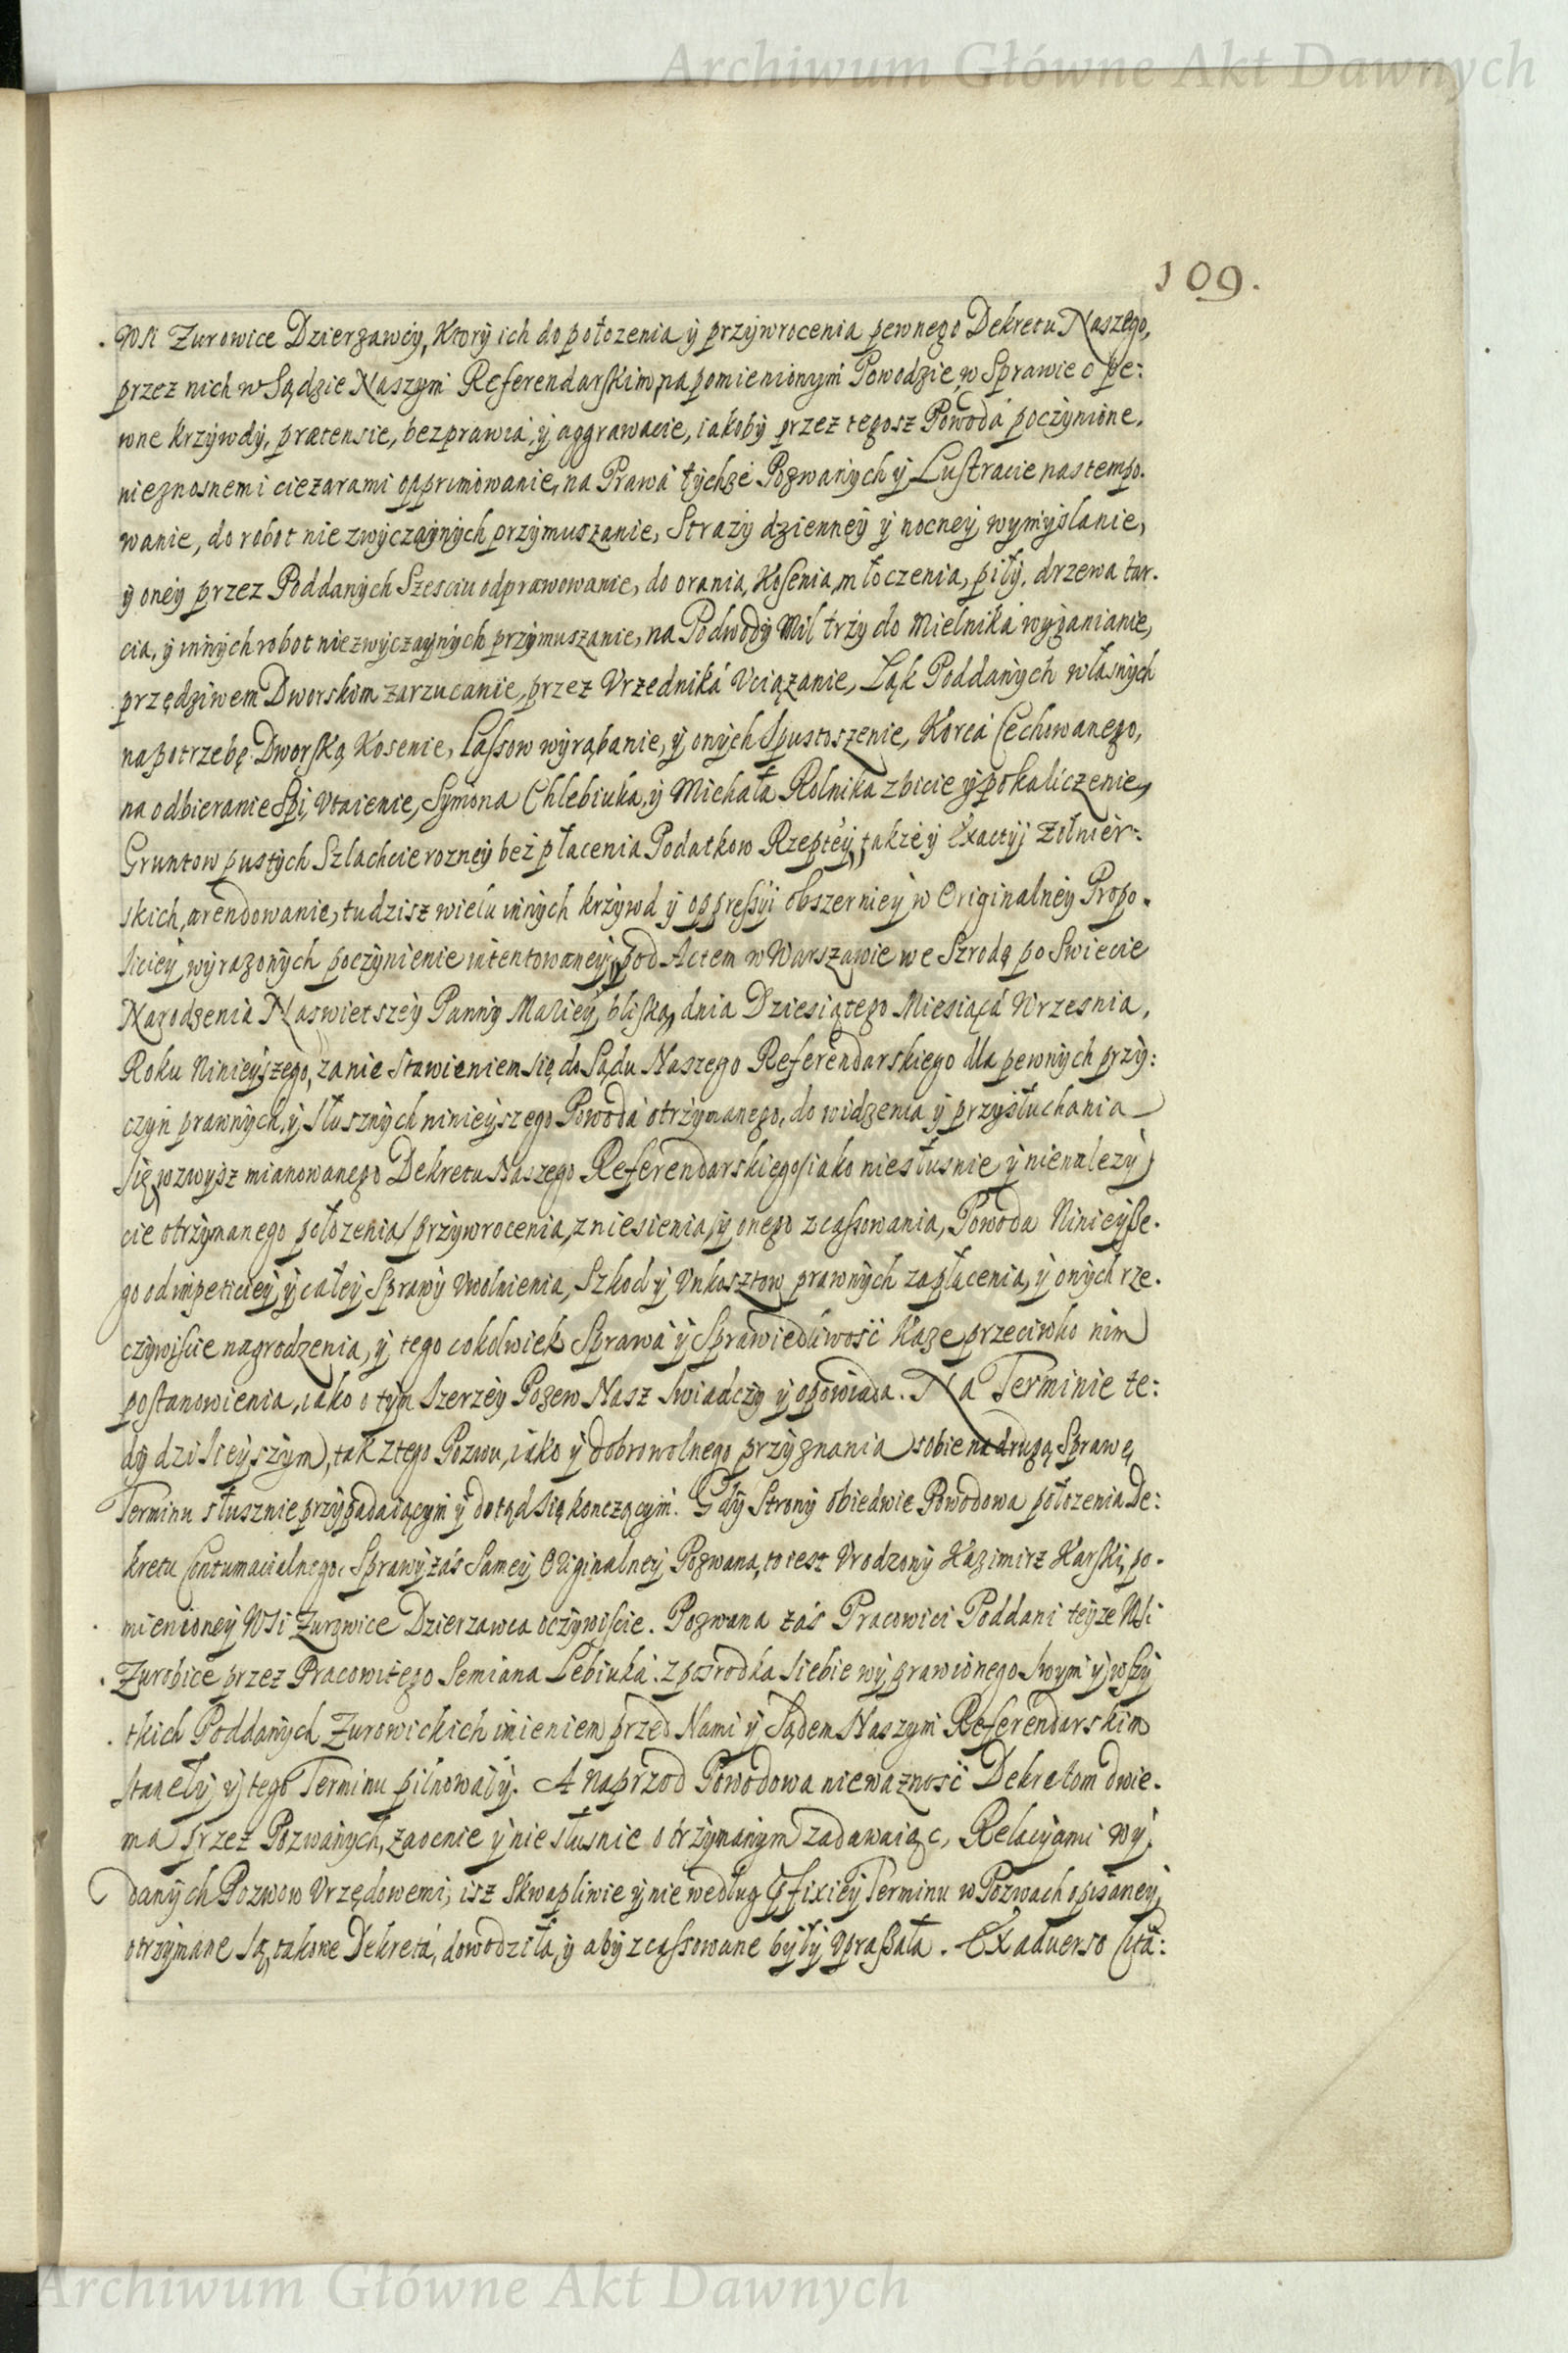 Archiwum Główne Akt Dawnych
109.
Wsi Zurowice Dzierzawcÿ, Ktorÿ ich do położenia ÿ przÿwrocenia pewnego Dekretu Naszego,
przez nich w Sądzie Naszÿm Referendarskim, na pomienionÿm Powodzie, w Sprawie o pe:
wne krzÿwdÿ, prætensie, bezprawia, ÿ aggrawacie, iakobÿ przez tegosz Powodá poczÿnione,
nieznosnemi ciezarami opprimowanie, na Prawá tÿchże Pozwanÿch ÿ Lustracie nastempo.
wanie, do robot nie zwÿczaÿnÿch przÿmuszanie, Strażÿ dzienneÿ ÿ nocneÿ, wÿmÿslanie,
ÿ oneÿ przez Poddanÿch Szesciu odprawowanie, do orania, Koſenia, młoczenia, piłÿ, drzewa tar.
cia, ÿ innÿch robot niezwÿczaÿnÿch przÿmuszanie, na Podwodÿ Mil trzÿ do Mielniká wÿganianie,
przędziwem Dworskom zarzucanie, przez Vrzedniká Vciązanie, Ląk Poddanÿch własnÿch
na potrzebę Dworską Kosenie, Lassow wÿrąbanie, ÿ onÿch Spustoszenie, Korcá Cechowanego,
na odbieranie Spi, Vtaienie, Sÿmona Chlebiuka, ÿ Michała Rolnika zbicie ÿ pokaliczenie,
Gruntow pustÿch Szlachcie rozneÿ beż płacenia Podatkow Rzeptéÿ, takżeÿ Exactÿj Żołnier:
skich, arendowanie, tudzisz wielu innÿch krzÿwd ÿ oppressÿi obszerniey w Originalnéÿ Propo.
siciéÿ wÿrazonÿch poczÿnienie intentowaneÿ, pod Actem w Warszawie we Szrodą po Swiecie
Narodzenia Naswietszéÿ Pannÿ Mariéÿ, bliską, dnia Dziesiątego Miesiącá Wrzesnia,
Roku Ninieÿszego, za nie stawieniem się do Sądu Naszego Referendarskiego dla pewnÿch przÿ:
czÿn prawnÿch, ÿ Słusznÿch ninieÿszego Powodá otrzÿmanego, do widzenia ÿ przÿsłuchania
się wzwÿsz mianowanego Dekretu Naszego Referendarskiego iako niesłusnie ÿ nienależÿ
cie otrzÿmanego położenia, przÿwrocenia, zniesienia, ÿ onego zcassowania, Powoda Ninieÿsze.
go od impeticieÿ, ÿ całeÿ Sprawÿ Vwolnienia, Szkod ÿ Vnkosztow prawnÿch zapłacenia, ÿ onÿch rze.
czÿwiscie nagrodzenia, ÿ tego cokolwiek Sprawá ÿ Sprawiedliwość Każe przeciwko nim
postanowienia, iako o tÿm szerzéÿ Pozew Nasz Swiadczÿ ÿ opowiada. Na Terminie te:
dÿ dzisieÿszÿm, tak z tego Pozwu, iako ÿ dobrowolnego przÿznania sobie na drugą Sprawę
Terminu słusznie przÿpadaiącÿm ÿ dotąd się konczącÿm. Gdÿ Stronÿ obiedwie Powodowa położenia De:
kretu Contumacialnego, Sprawÿ zás Sameÿ Originalneÿ Pozwana, to iest Vrodzonÿ Kazimirz Karski, po.
mienioneÿ Wsi Żurowice Dzierzawca oczÿwiscie. Pozwana zás Pracowici Poddani téÿze Wsi
Żurobice przez Pracowitego Semiana Lebiuká z posrodka siebie wÿprawionego swÿm ÿ wszÿ
tkich Poddanÿch Zurowickich imieniem przed Nami ÿ Sądem Naszÿm Referendarskim
stanełÿ ÿ tego Terminu pilnowałÿ. A naprzod Powodowa niewazność Dekretom dwie.
ma przez Pozwanÿch, zaocnie ÿ niesłusnie otrzÿmanÿm zadawaiąc, Relacÿami wÿ
danÿch Pozwow Vrzędowemi, isz skwapliwie ÿ nie według Pfixiéÿ Terminu w Pozwach opisaneÿ,
otrzÿmane są, takowe Dekretá, dowodziła, ÿ abÿ zcassowane bÿłÿ Vpraszała. Ex aduerso Citá:
Archiwum Główne Akt Dawnych